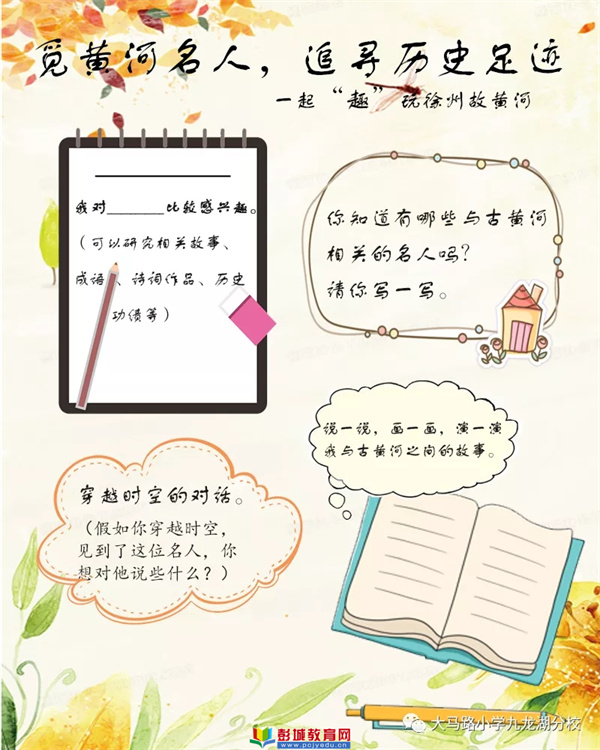 觅黄河名人，追寻历史足迹
一起“趣”玩徐州故黄河
我对______比较感兴趣。
（可以研究相关故事、
成语、诗词作品、历史
功绩等）
你知道有哪些与古黄河
相关的名人吗？
请你写一写。
说一说，画一画，演一演
我与古黄河之间的故事。
穿越时空的对话。
（假如你穿越时空，
见到了这位名人，你
想对他说些什么？）
大马路小学九龙湖分校
彭城教育网
www.pcjyedu.cn